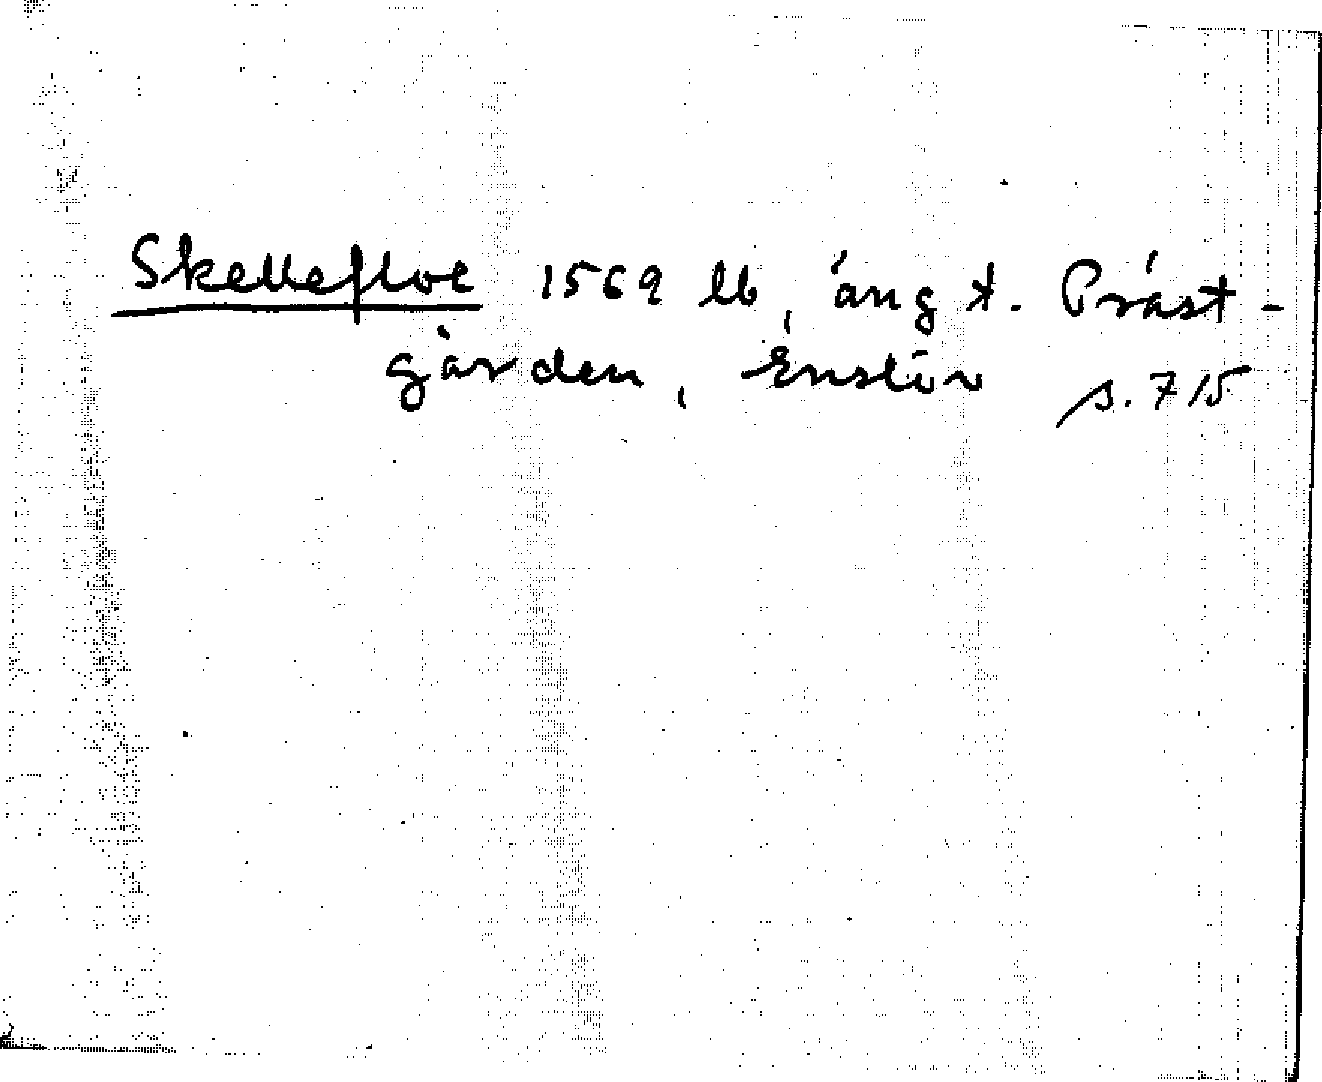 Skellefloe 1569 lb, äng t. Präst-
gården, Enslöv s. 715